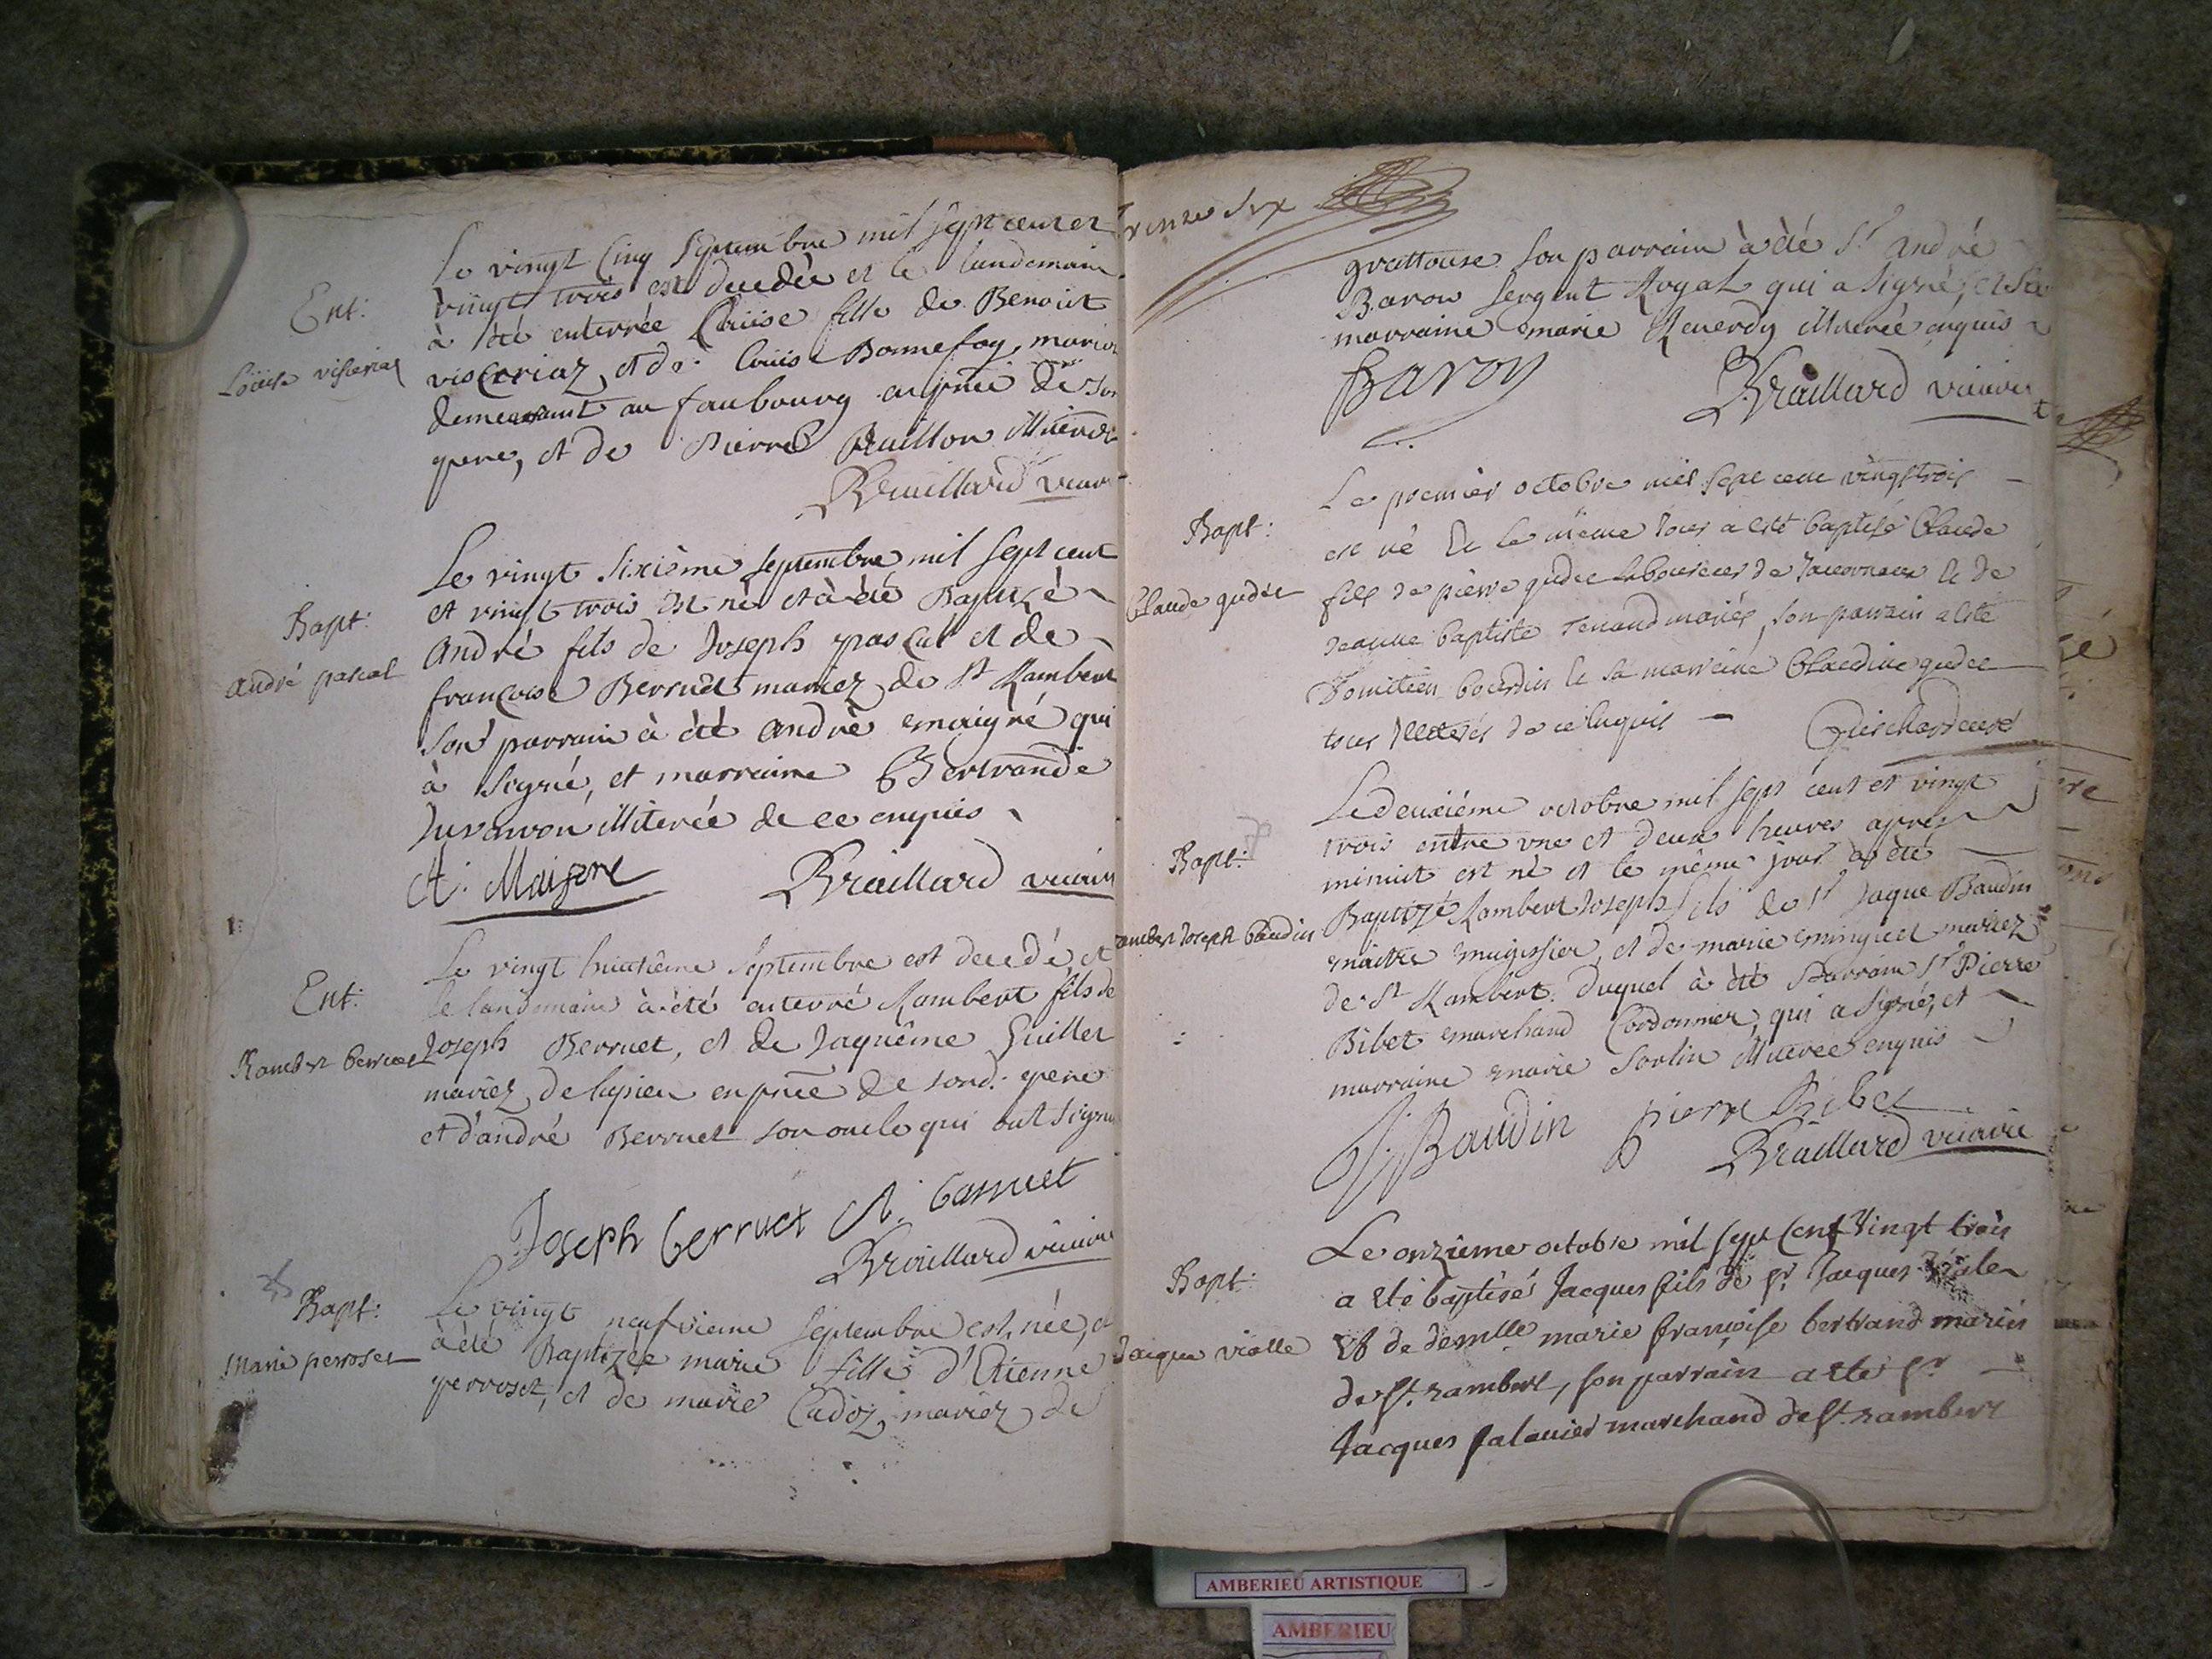 Ent:
Loüise visseriaz
Le vingt Cinq Septembre mil sept cent et
vingt trois est decedée et le landemain
à été enterrée Loüise fille de Benoist
visceriaz, et de Louise Bonnefoy, mariez
demeurant au faubourg en pnce de son
pere, et de Pierre illiterés
Braillard vicaire
Bapt:
andré pascal
Le vingt sixiéme septembre mil sept cent
et vingt trois est né et à été Baptizé
andré fils de Joseph pascal et de
françoise Berruet mariez de St Rambert
son parrain à été andré maigré qui
à signé, et marraine Bertrande
Juvanon illiterée de ce enquis
A. Maigre Braillard vicaire
Ent:
Rambert berruet
Le vingt huitiéme septembre est decedé, et
le landemain à été enterré Rambert fils de
Joseph Berruet, et de Jaquéme Guillet
mariez de lupieu en pnce de sond. pere
et d'andré Berruet son oncle qui ont signé
Joseph berruet A. barruet
Braillard vicaire
Bapt:
Marie perroset
Le vingt neufvieme septembre est née, et
à été Baptizée marie fille d'Etienne
perroset, et de marie Cadoz, mariez de
trente six
grattoux son parrain à été Sr andré
Baron sergent Royal qui a signé, et sa
marraine marie Reverdy illiterée enquis
Baron Braillard vicaire
Bapt:
Claude gudet
Le premier octobre mil sept cent vingt trois
est né & le même jour a esté baptisé Claude
fils de pierre gudet laboureur de & de
jeanne baptiste Tenand mariés, son parrain a esté
Domitien bourdin & sa marraine Claudine gudet
tous illiterés de ce enquis
Bapt:
Rambert Joseph baudin
Le deuxiéme octobre mil sept cent et vingt
trois entre une et deux heures aprés
minuit est né et le même jour à été
Baptizé Rambert Joseph fils de Sr Jaque Baudin
maitre megissier, et de marie minguet mariez
de St Rambert. Duquel à été Parrain Sr Pierre
Bibet marchand Cordonnier, qui a signé, et
marraine marie Sorlin illiterée enquis
J. Baudin pierre Bibet
Braillard vicaire
Bapt:
Jacque vialle
Le onzieme octobre mil sept Cent Vingt trois
a eté baptisé Jacques fils de sr. Jacques Viale
et de demlle marie françoise bertrand mariés
de st. rambert, son parrain a eté sr
Jacques falavier marchand de st. rambert
AMBERIEU ARTISTIQUE
AMBERIEU